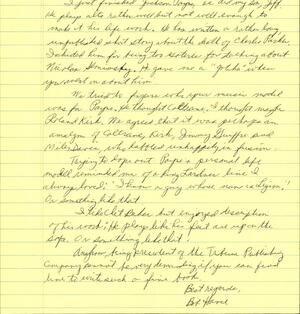 I just finished Jackson Payne, so did my son, Jeff.
He plays alto rather well but not well enough to
make it his life work. He has written a rather long
unpublished short story about the death of Charlie Parker.
I chided him for being too
He gave me a
you
We tried to figure who your music model
was for Payne. He thought Coltrane, I thought maybe
Roland Kirk. We agreed that it was perhaps an
amalgam of Coltrane, Kirk, Jimmy Giuffre and
Miles Davis, who battled unhappily in fusion.
Trying to dope out Payne's personal life
model reminded me of a Ring Lardner line I
always loved: "I know a guy whose name is Legion,"
Or something like that.
I like Chet Baker but enjoyed description
of his work: He plays like his feet are up on the
sofa. Or something like that!
Anyhow, being president of the Tribune Publishing
Company cannot be very demanding if you can find
time to write such a fine book.
Best regards,
Bob